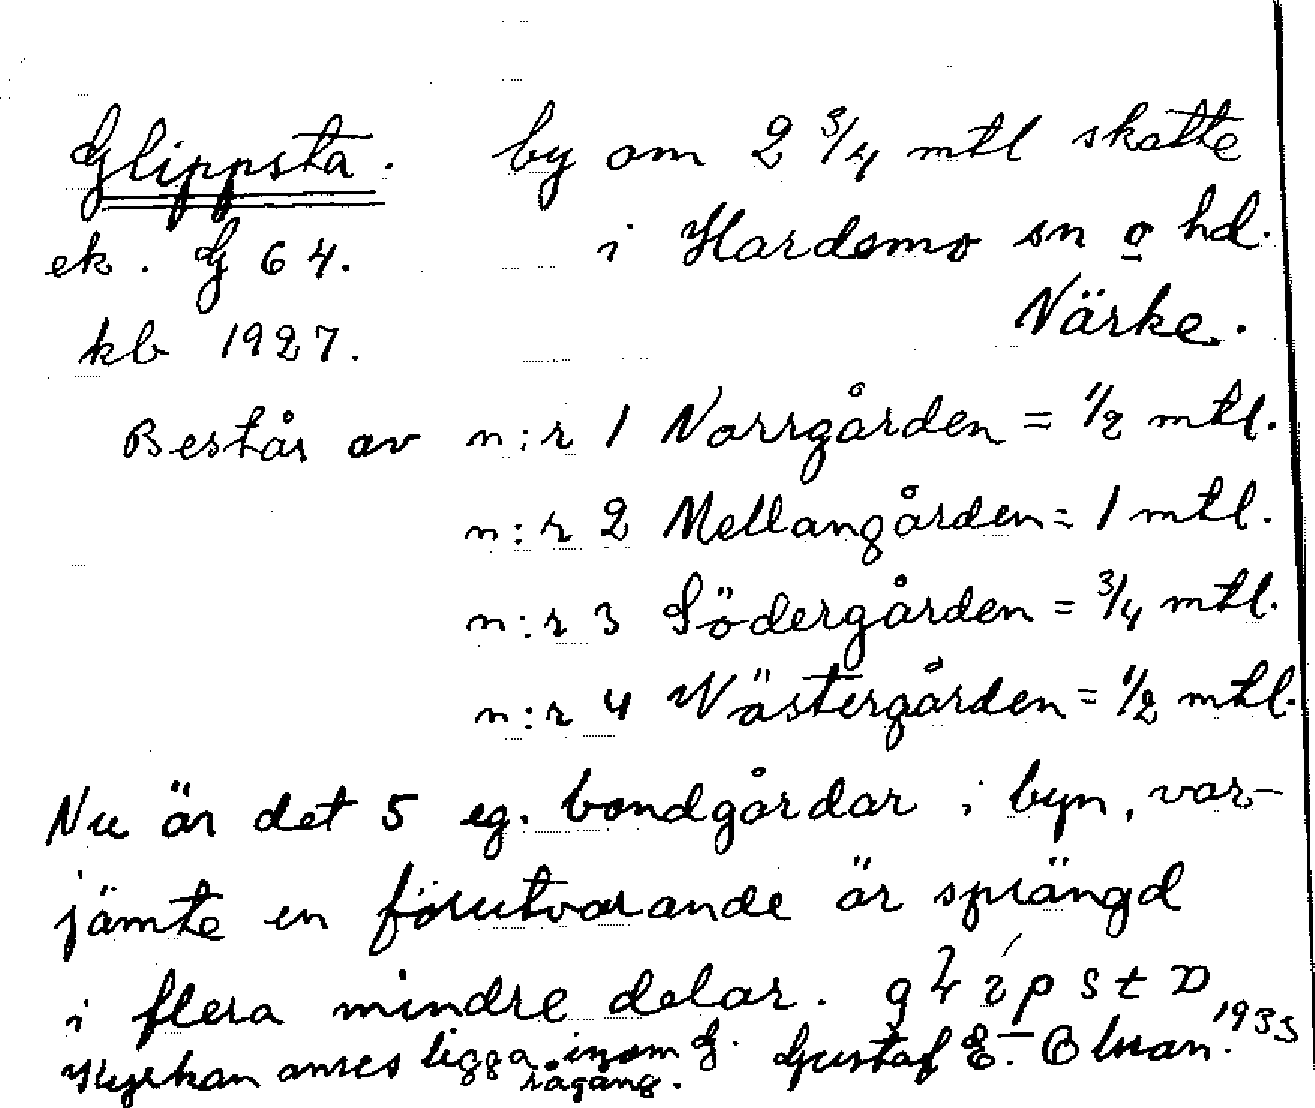 Glippsta. by om 2 3/4 mtl skatte
ek. G 64. i Hardemo sn o hd.
Närke.
kb 1927.
Består av n:r 1 Norrgården = 1/2 mtl.
n:r 2 Mellangården = 1 mtl.
n:r 3 Södergården = 3/4 mtl.
n:r 4 Västergården = 1/2 mtl.
Nu är det 5 eg. bondgårdar i byn, var-
jämte en förutvarande är sprängd
i flera mindre delar.
Kyrkan anses ligga inom G. rågång. Gustaf E. Olson. 1933